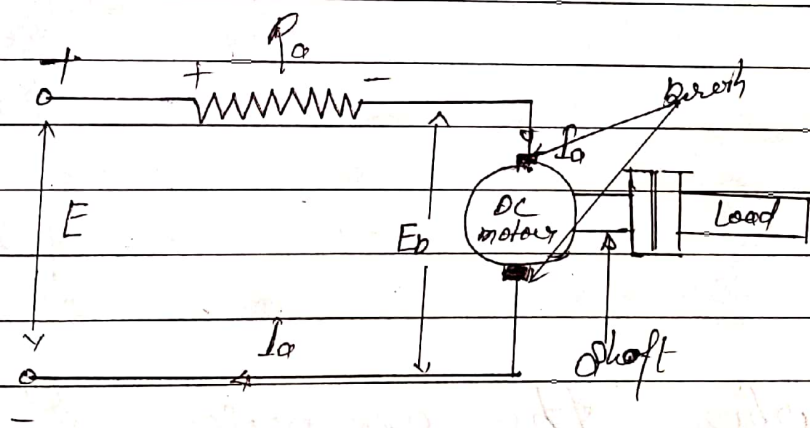 Ra
+
+ -
Brush
Ia
E
Eb
DC
motour
Load
Ia
Shaft
-